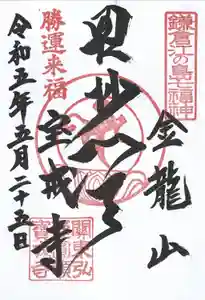 鎌倉江の島七福神
金龍山
毘沙門天
勝運来福
宝戒寺
令和五年五月二十五日